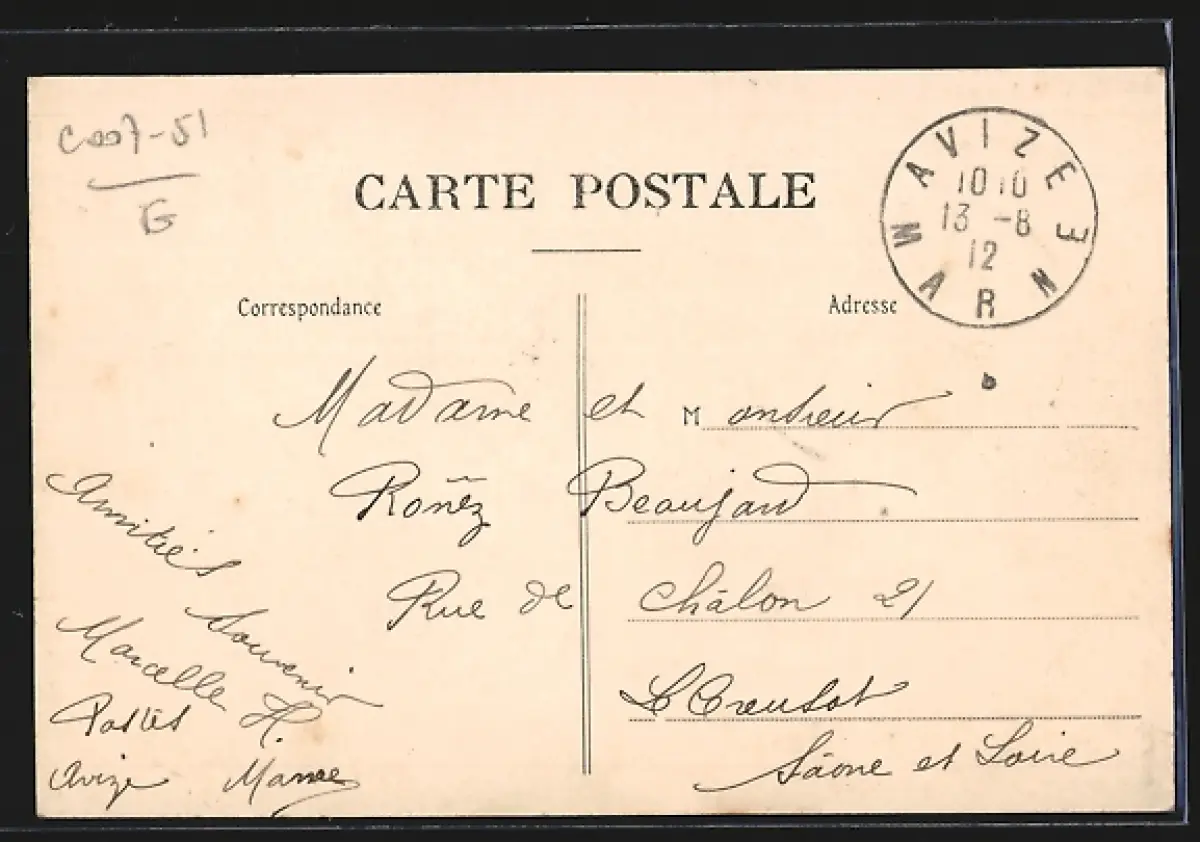 C007-51
G
CARTE POSTALE
AVIZE
MARNE
10 10
13 -8
12
Correspondance
Adresse
Madame et Monsieur
Beaujard
Rue de Châlon 21
Le Creusot
Saône et Loire
Amitiés
Souvenir
Marcelle H.
Postes
Avize Marne